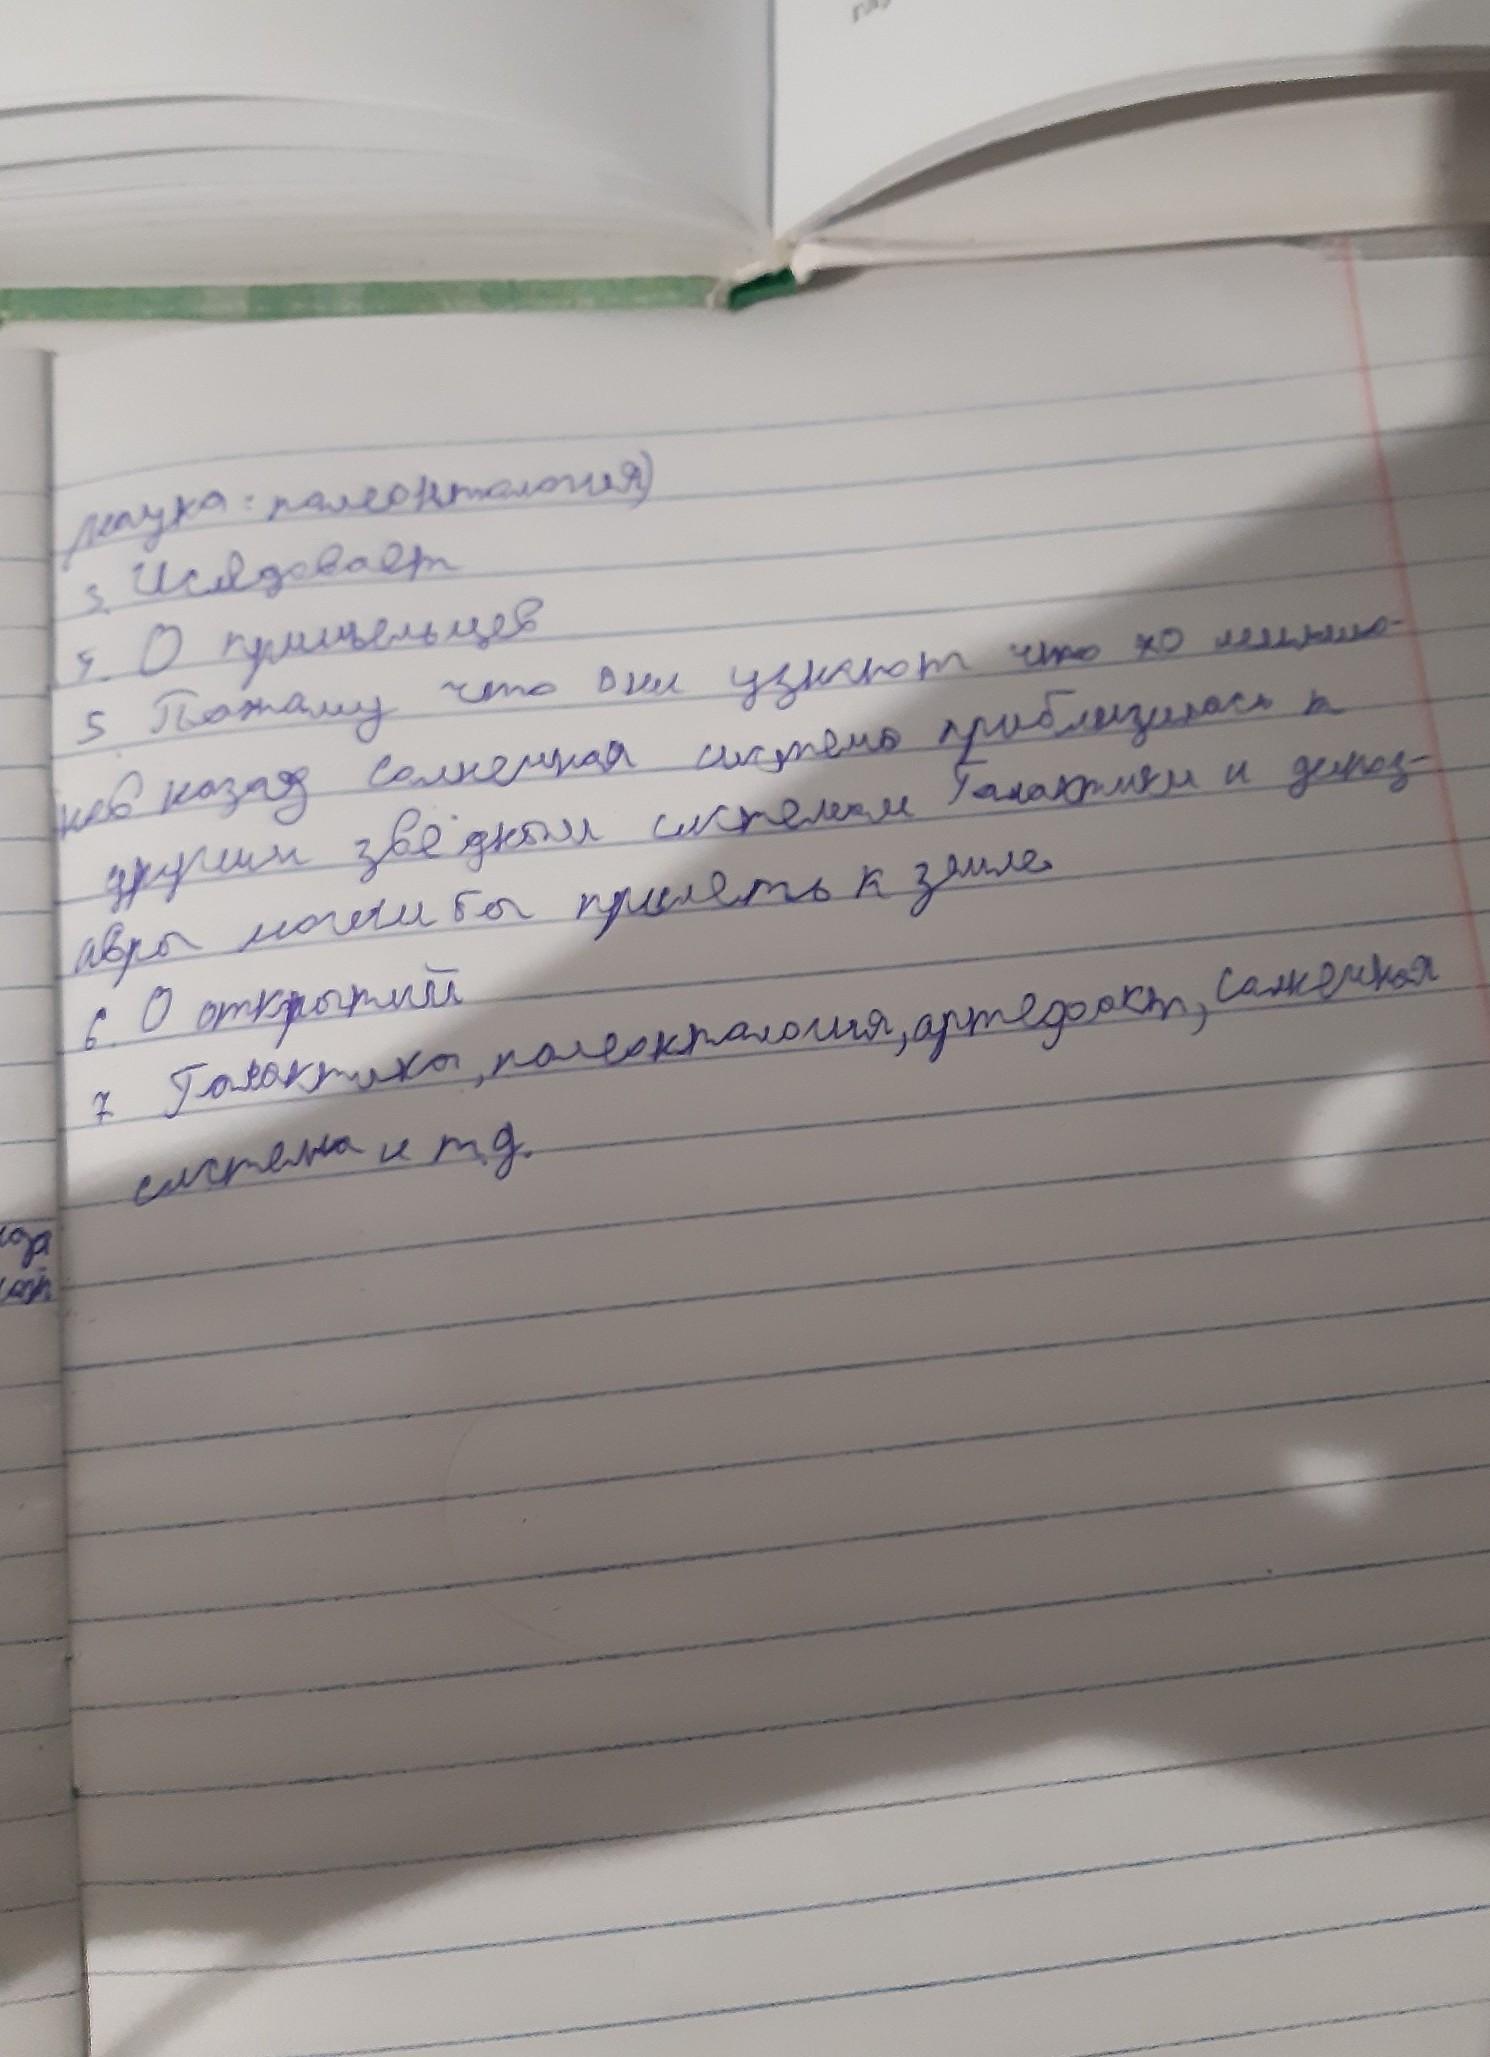 (наука: палеонталогия)
3. Иследовает
4. О пришельцев
5 Потому что они узнают что 70 миллио-
нов назад солнечная система приблизилась к
другим звёздным системам Галактики и диноз-
авры могли бы прилеть к земле.
6. О открытий
7 Галактика, палеонталогия, артефакт, солнечная
система и т.д.